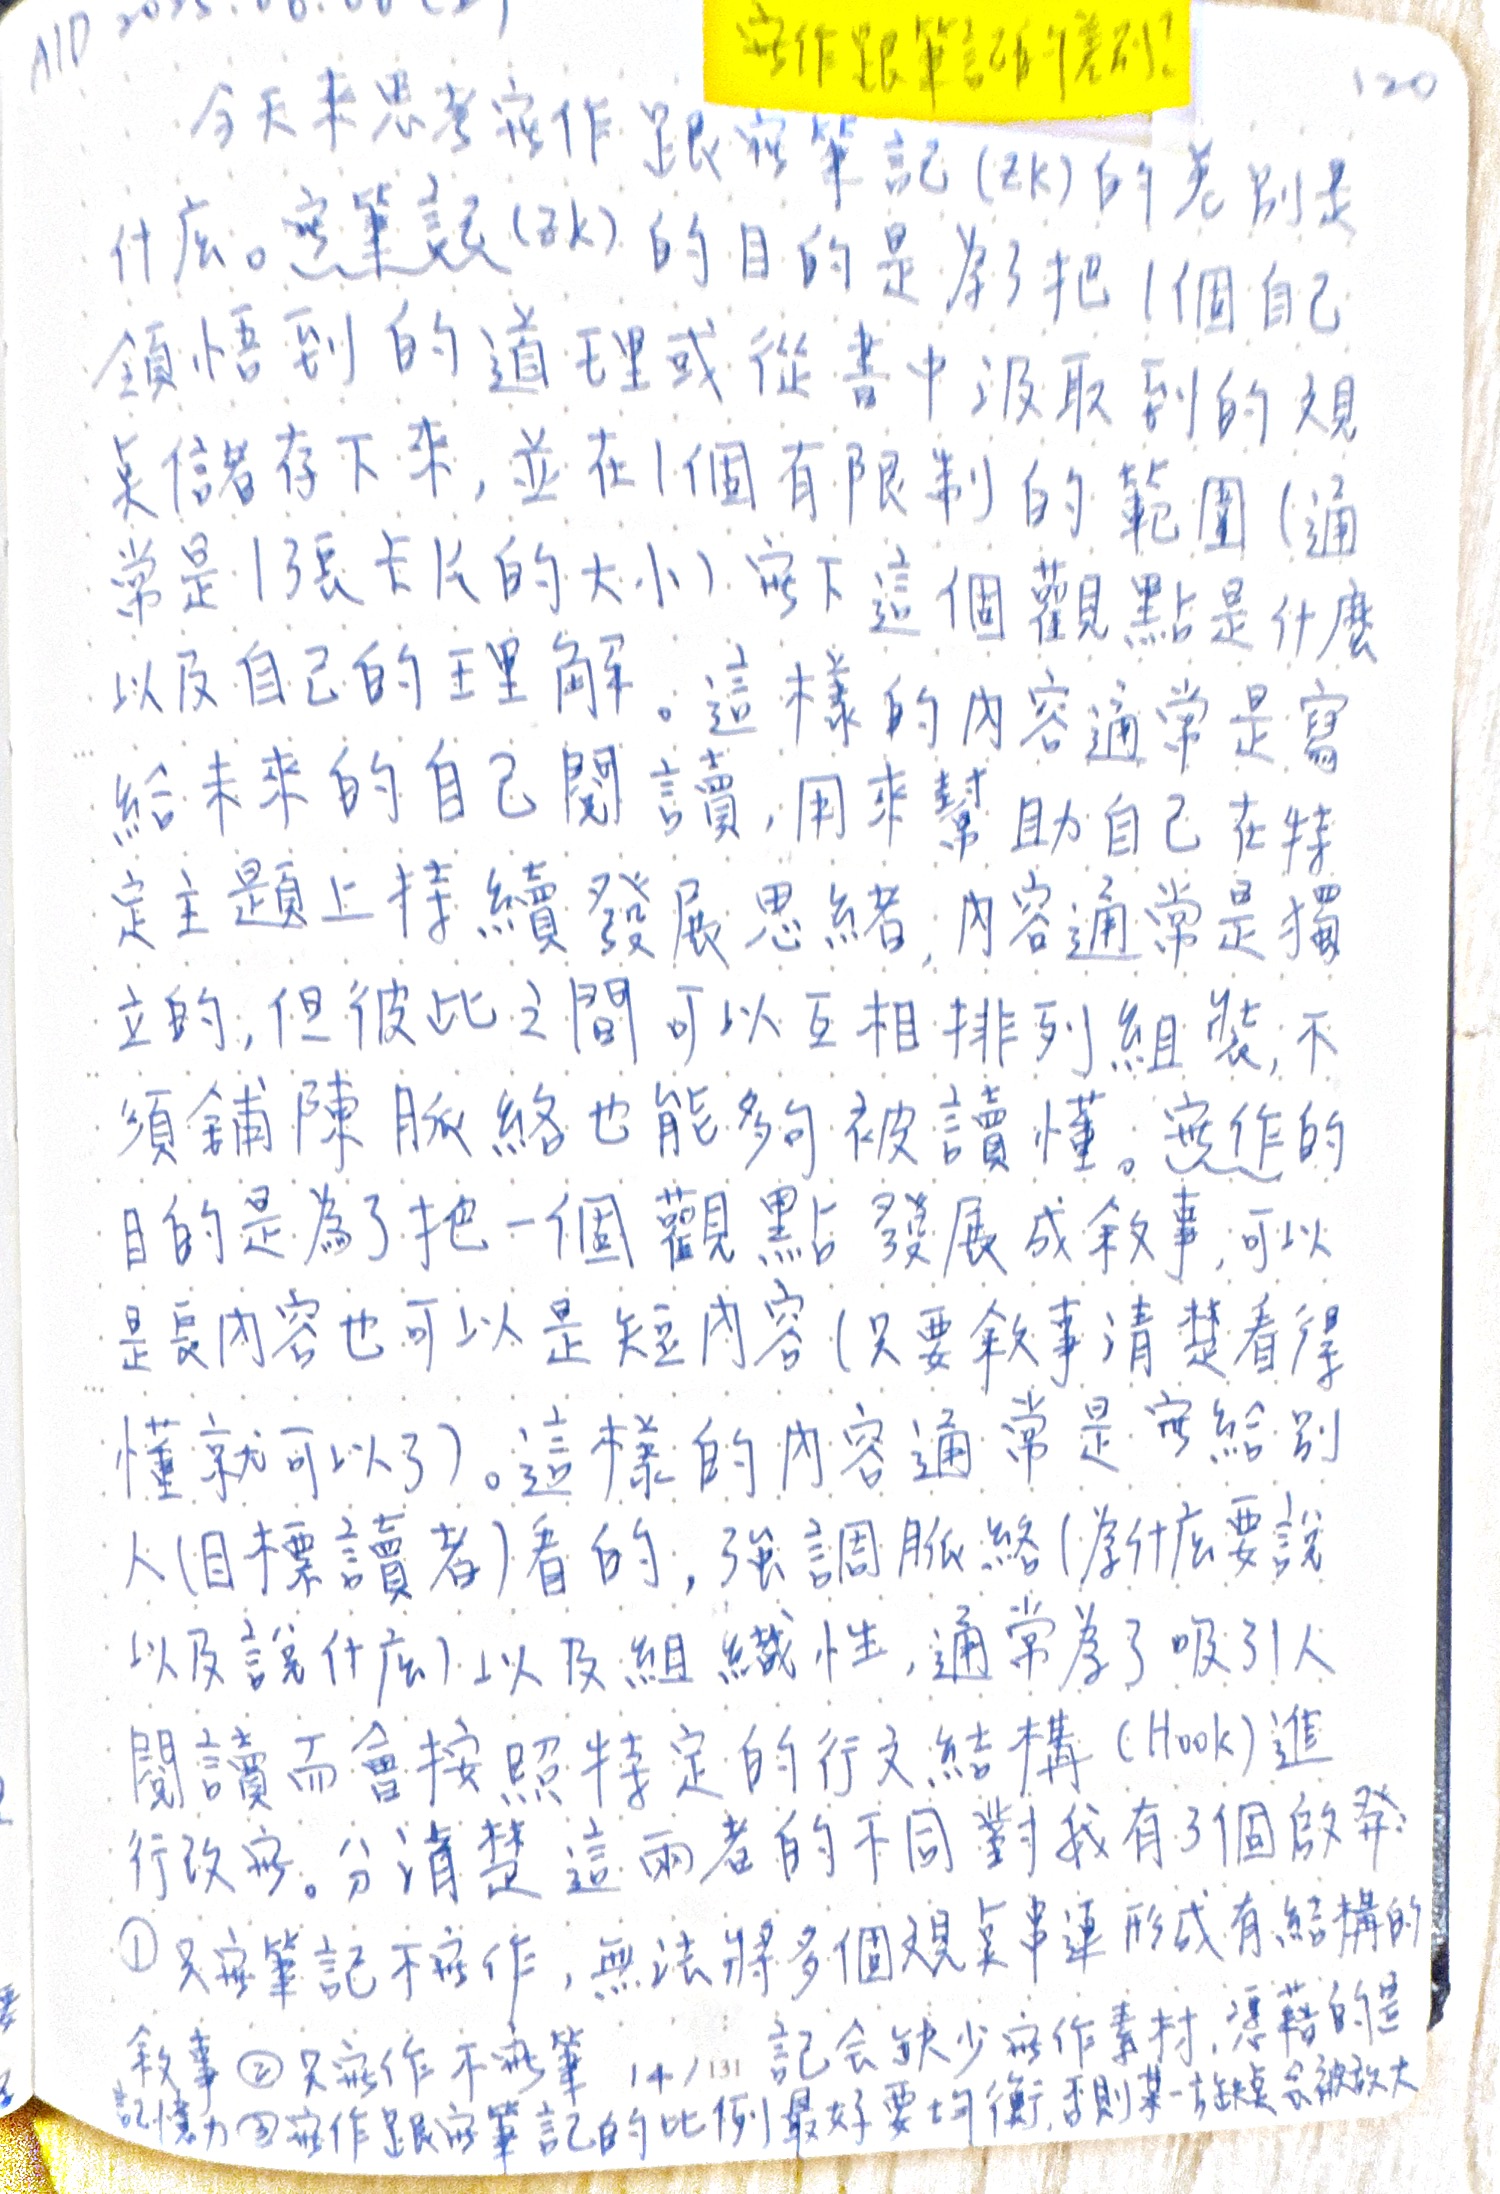 寫作跟筆記的差別?
120
今天來思考寫作跟寫筆記(ZK)的差別是
什庅。寫筆記(ZK)的目的是為了把1個自己
領悟到的道理或從書中汲取到的覌
奌儲存下來,並在1個有限制的範圍(通
常是1張卡片的大小)寫下這個觀點是什麼
以及自己的理解。這樣的內容通常是寫
給未來的自己閱讀,用來幫助自己在特
定主題上持續發展思緒,內容通常是獨
立的,但彼此之間可以互相排列組裝,不
須鋪陳脈絡也能夠被讀懂。寫作的
目的是為了把一個觀點發展成敘事,可以
是長內容也可以是短內容(只要敘事清楚看得
懂就可以了)。這樣的內容通常是寫給別
人(目標讀者)看的,強調脈絡(為什庅要說
以及說什庅)以及組織性,通常為了吸引人
閱讀而會按照特定的行文結構(Hook)進
行改寫。分清楚這兩者的不同對我有3個啟發:
①只寫筆記不寫作,無法將多個覌奌串連形成有結構的
敘事②只寫作不寫筆記會缺少寫作素材,憑藉的是
記憶力③寫作跟寫筆記的比例最好要均衡,否則某一方缺奌會被放大
141/131